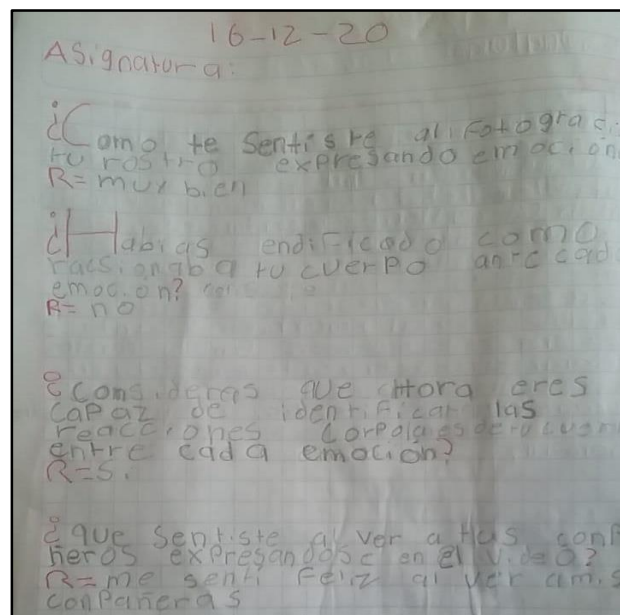 16-12-20
Asignatura:
¿Como te sentiste al fotografi
tu rostro expresando emocion
R= muy bien
¿Habias endificado como
racsionaba tu cuerpo ante cad
emocion?
R= no
¿consideras que ahora eres
capaz de identificar las
reacciones corpolaes de tu
entre cada emocion?
R=si
¿que sentiste al ver a tus conp
ñeros expresandose en el video?
R=me senti feliz al ver a mis
conpañeras